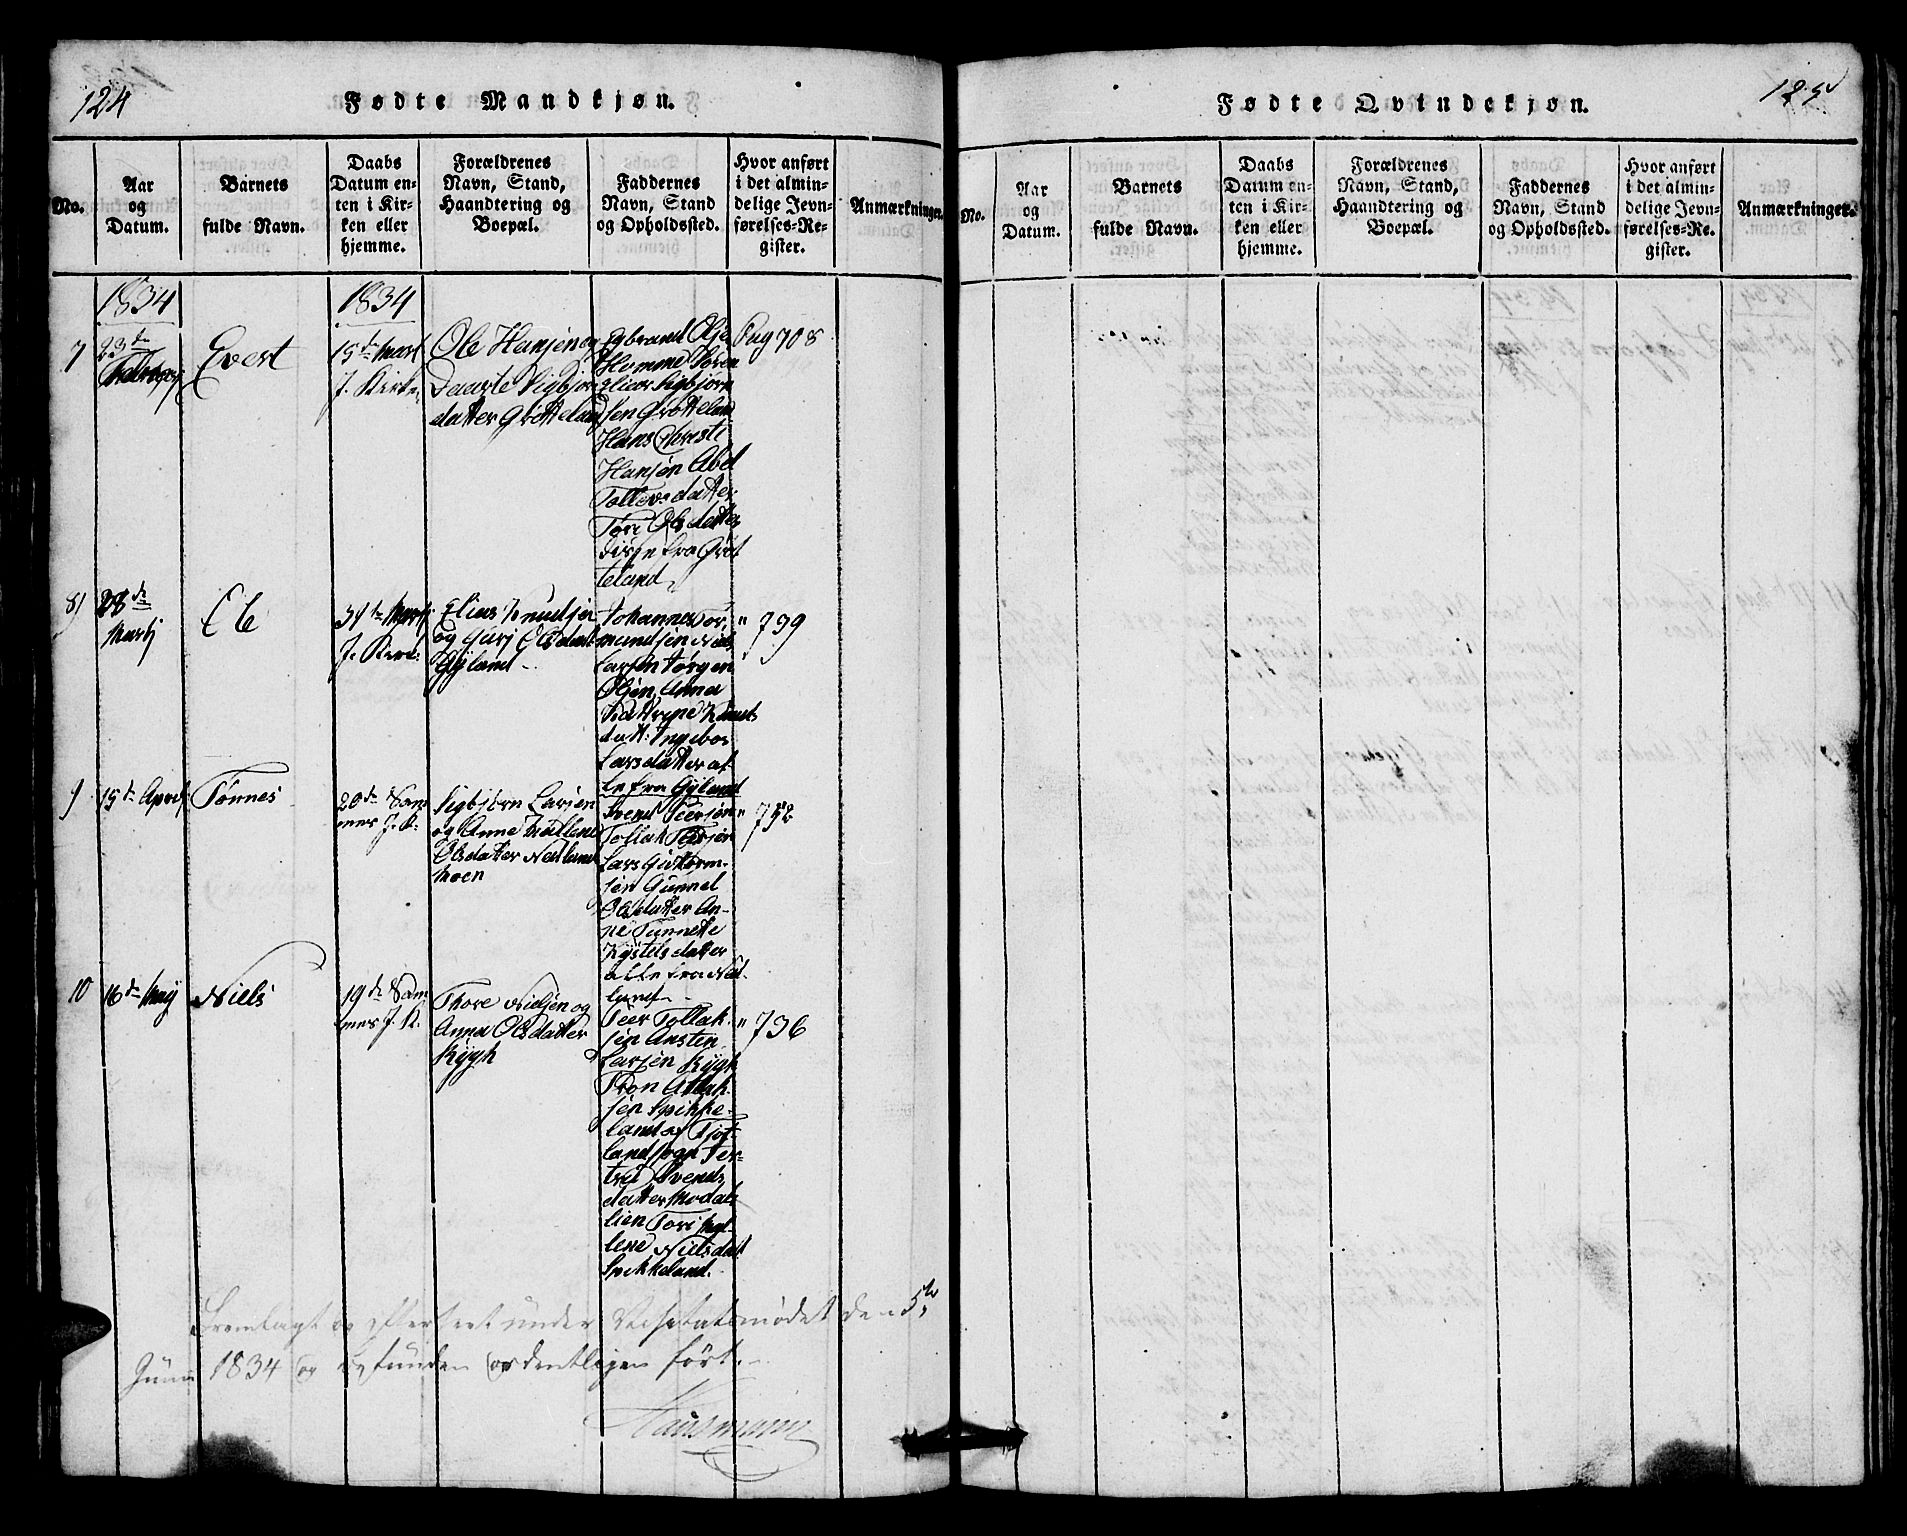 124
Fødte Mandkjøn.
No.
Aar
og
Datum.
Barnets
fulde Navn.
Daabs
Datum en-
ten i Kir-
ken eller
hjemme.
Forældrenes
Navn, Stand,
Haandtering og
Boepæl.
Faddernes
Navn, Stand
og Opholdssted.
Hvor anført
i det almin-
delige Jevn-
førelses-Re-
gister.
Anmærkninger.
1834
1834
7
23de
Evert
15de Mart
J. Kirke
Ole Hansen og
Sigbjørn
datter Grøtteland
Olse
Homme Søren
Sigbjørn
sen Grøtteland
Hans Christi
Hansen Abel
Tollevsdatter
Tori Olsdatter
disse fra Grøt
teland
Pag 708
8)
28de
Martj
Ole
31te Martj
J. Kirk:
Elias Knudsen
og Guri Olsdatt
Gyland
Johannes Tor
mundsen Niels
Larsen Jørgen
Olsen, Anna
Kattrine Knuds
datt: Ingebor
Larsdatter al
le fra Gyland
" 799
9
15de April
Tønnes
20de Sam
mes J. K:
Sigbjørn Larsen
og Anne Mallene
Olsdatter Nedland
Moen
Svend Peersøn
Tollak Peersøn
Lars Guttorm-
sen Gunnel
Olsdatter An-
ne Tønnette
Kystelsdatter
alle fra Ned
land
" 752
10
16de Maij
Niels
19de Sam
mes J. K.
Thore Nielsen og
Anna Olsdatter
Rygh
Peer Tollak
sen Ansten
Larsen Rygh
Tron Atlak
sen Spikke-
land af Fjot-
landsogn Ger-
trud Svends
datter Modals
lien Tori Mal-
lene Nielsdatt
Spikkeland.
" 736
Fremlagt og efterseet under Visitatsmødet den 5te
Junii 1834 og befunden ordentligen ført.
Hausmann
125
Fødte Qvindekjøn.
No.
Aar
og
Datum.
Barnets
fulde Navn.
Daabs
Datum en-
ten i Kir-
ken eller
hjemme.
Forældrenes
Navn, Stand,
Haandtering og
Boepæl.
Faddernes
Navn, Stand
og Opholdssted.
Hvor anført
i det almin-
delige Jevn-
førelses-Re-
gister.
Anmærkninger.